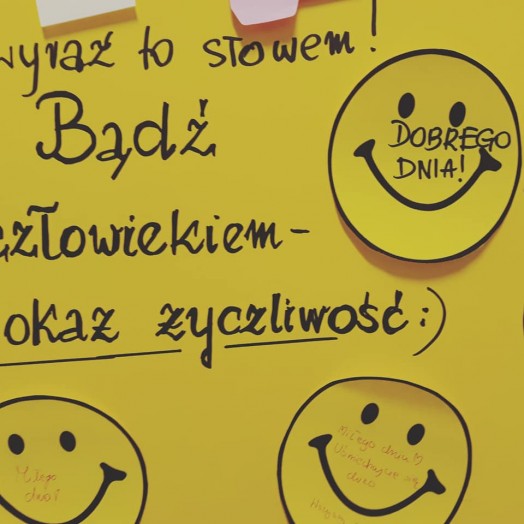 wyraź to słowem!
Bądź
człowiekiem-
okaż życzliwość:)
DOBREGO
DNIA!
Miłego
dnia!
Miłego dnia
Uśmiechajcie się
dużo